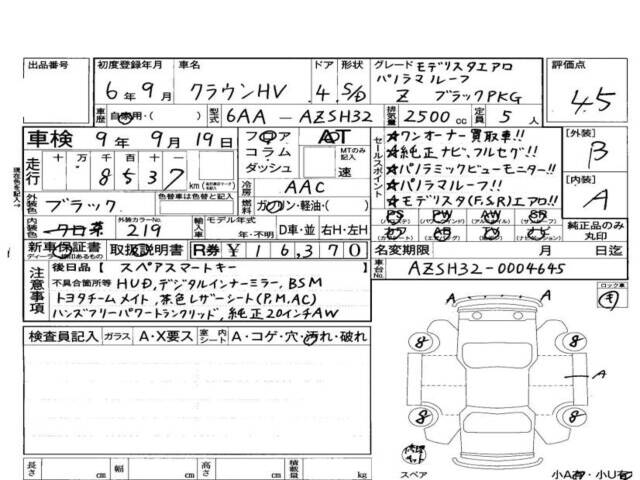 出品番号
初度登録年月 車名 ドア 形状 グレード モデリスタエアロ
パノラマルーフ
6年9月 クラウンHV 4 S/D Z ブラックPKG
評価点
4.5
車歴 自家用・( ) 型式 6AA-AZSH32 排気量 2500cc 定員 5人
車検 9年9月19日 フロア AT
コラム MTのみ記入
ダッシュ 速
走行 十万千百十 8537 (km)
冷房 AAC
外装色 ブラック 色替車は色替と記入
燃料 ガソリン・軽油・( )
内装色 クロ茶 外装カラーNo. 219 輸入車 モデル年式 年・不明 D車・並 右H・左H
セールスポイント
☆ワンオーナー買取車!!
☆純正ナビ、フルセグ!!
☆パノラミックビューモニター!!
☆パノラマルーフ!!
☆モデリスタ(F.S.R)エアロ!!
PS PW AW SR
[外装]
B
[内装]
A
純正品のみ丸印
新車保証書 取扱説明書 R券 ¥16,370
名変期限 月 日迄
車台No. AZSH32-0004645
注意事項
後日品[スペアスマートキー]
不具合箇所等 HUD,デジタルインナーミラー,BSM
トヨタチームメイト,茶色レザーシート(P.M,AC)
ハンズフリーパワートランクリッド,純正20インチAW
ロック車
キ
検査員記入 ガラス A・X要ス 室内シート A・コゲ・穴・汚れ・破れ
A
A
8 8
A
8 8
スペア
小A有・小U有
長さ cm 幅 cm 高さ cm 積載量 kg